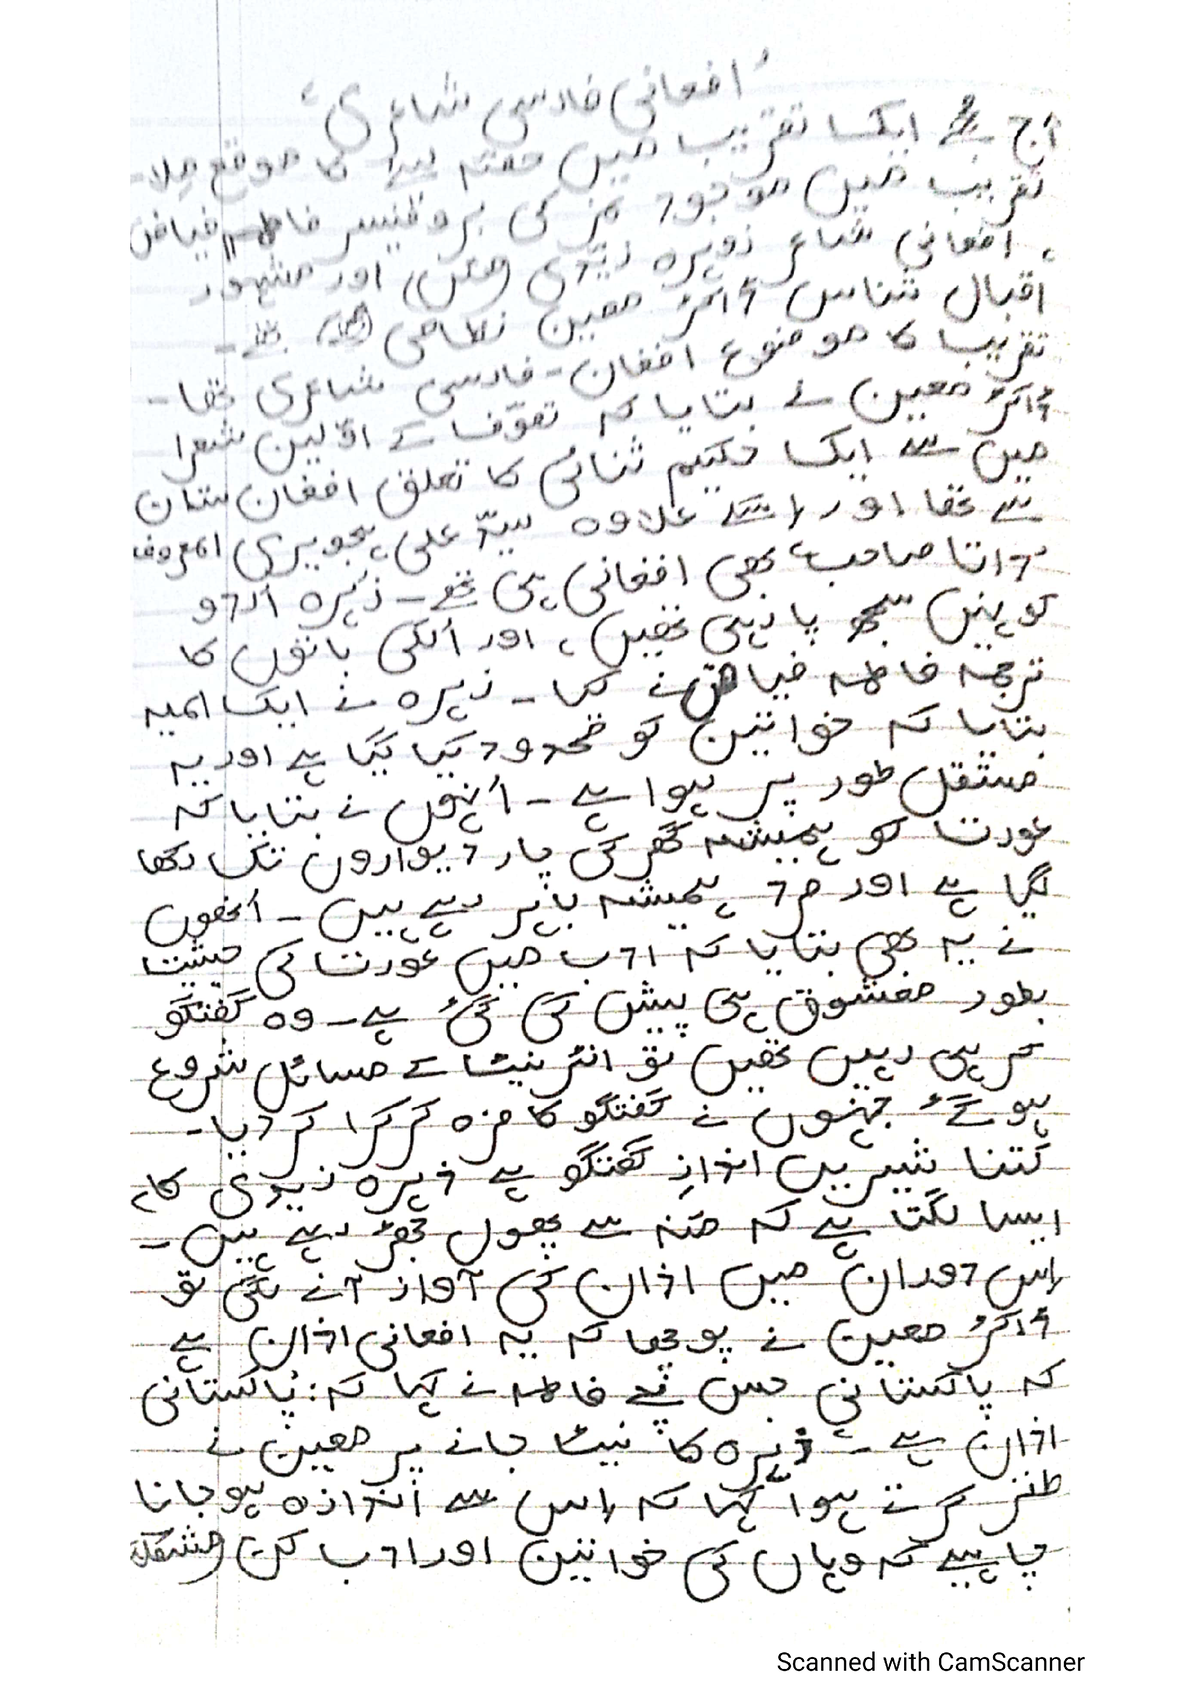 'افغانی فارسی شاعری'
آج مجھے ایک تقریب میں حصّہ لینے کا موقع مِلا۔
تقریب میں موجود لمز کی پروفیسر فاطمہ فیاض
، افغانی شاعر زہرہ زیدی اور مشہور
اقبال شناس ڈاکٹر معین نظامی تھے۔
تقریب کا موضوع افغان-فارسی شاعری تھا۔
ڈاکٹر معین نے بتایا کہ تصوّف کے اوّلین شعرا
میں سے ایک حکیم ثنائی کا تعلق افغانستان
سے تھا اور اِسکے علاوہ سیّد علی ہجویری المعروف
'داتا صاحب' بھی افغانی ہی تھے۔ زہرہ اُردو
کو نہیں سمجھ پا رہی تھیں، اور اُنکی باتوں کا
ترجمہ فاطمہ فیاض نے کیا۔ زہرہ نے ایک المیہ
بتایا کہ خواتین کو محدود کیا گیا ہے اور یہ
مستقل طور پر ہوا ہے۔ اُنہوں نے بتایا کہ
عورت کو ہمیشہ گھر کی چار دیواروں تک رکھا
گیا ہے اور مرد ہمیشہ باہر رہے ہیں۔ اُنھوں
نے یہ بھی بتایا کہ ادب میں عورت کی حیثیت
بطور معشوق ہی پیش کی گئی ہے۔ وہ گفتگو
کر ہی رہیں تھیں تو انٹرنیٹ کے مسائل شروع
ہو گئے جنہوں نے گفتگو کا مزہ کرکرا کر دیا۔
کتنا شیریں اندازِ گفتگو ہے زہرہ زیدی کا،
ایسا لگتا ہے کہ مُنہ سے پھول جھڑ رہے ہیں۔
اِس دوران میں اذان کی آواز آنے لگی تو
ڈاکٹر معین نے پوچھا کہ یہ افغانی اذان ہے
کہ پاکستانی جس پے فاطمہ نے کہا کہ: 'پاکستانی
اذان ہے۔' زہرہ کا نیٹ جانے پر معین نے
طنز کرتے ہوا کہا کہ اِس سے اندازہ ہو جانا
چاہیے کہ وہاں کی خواتین اور ادب کن